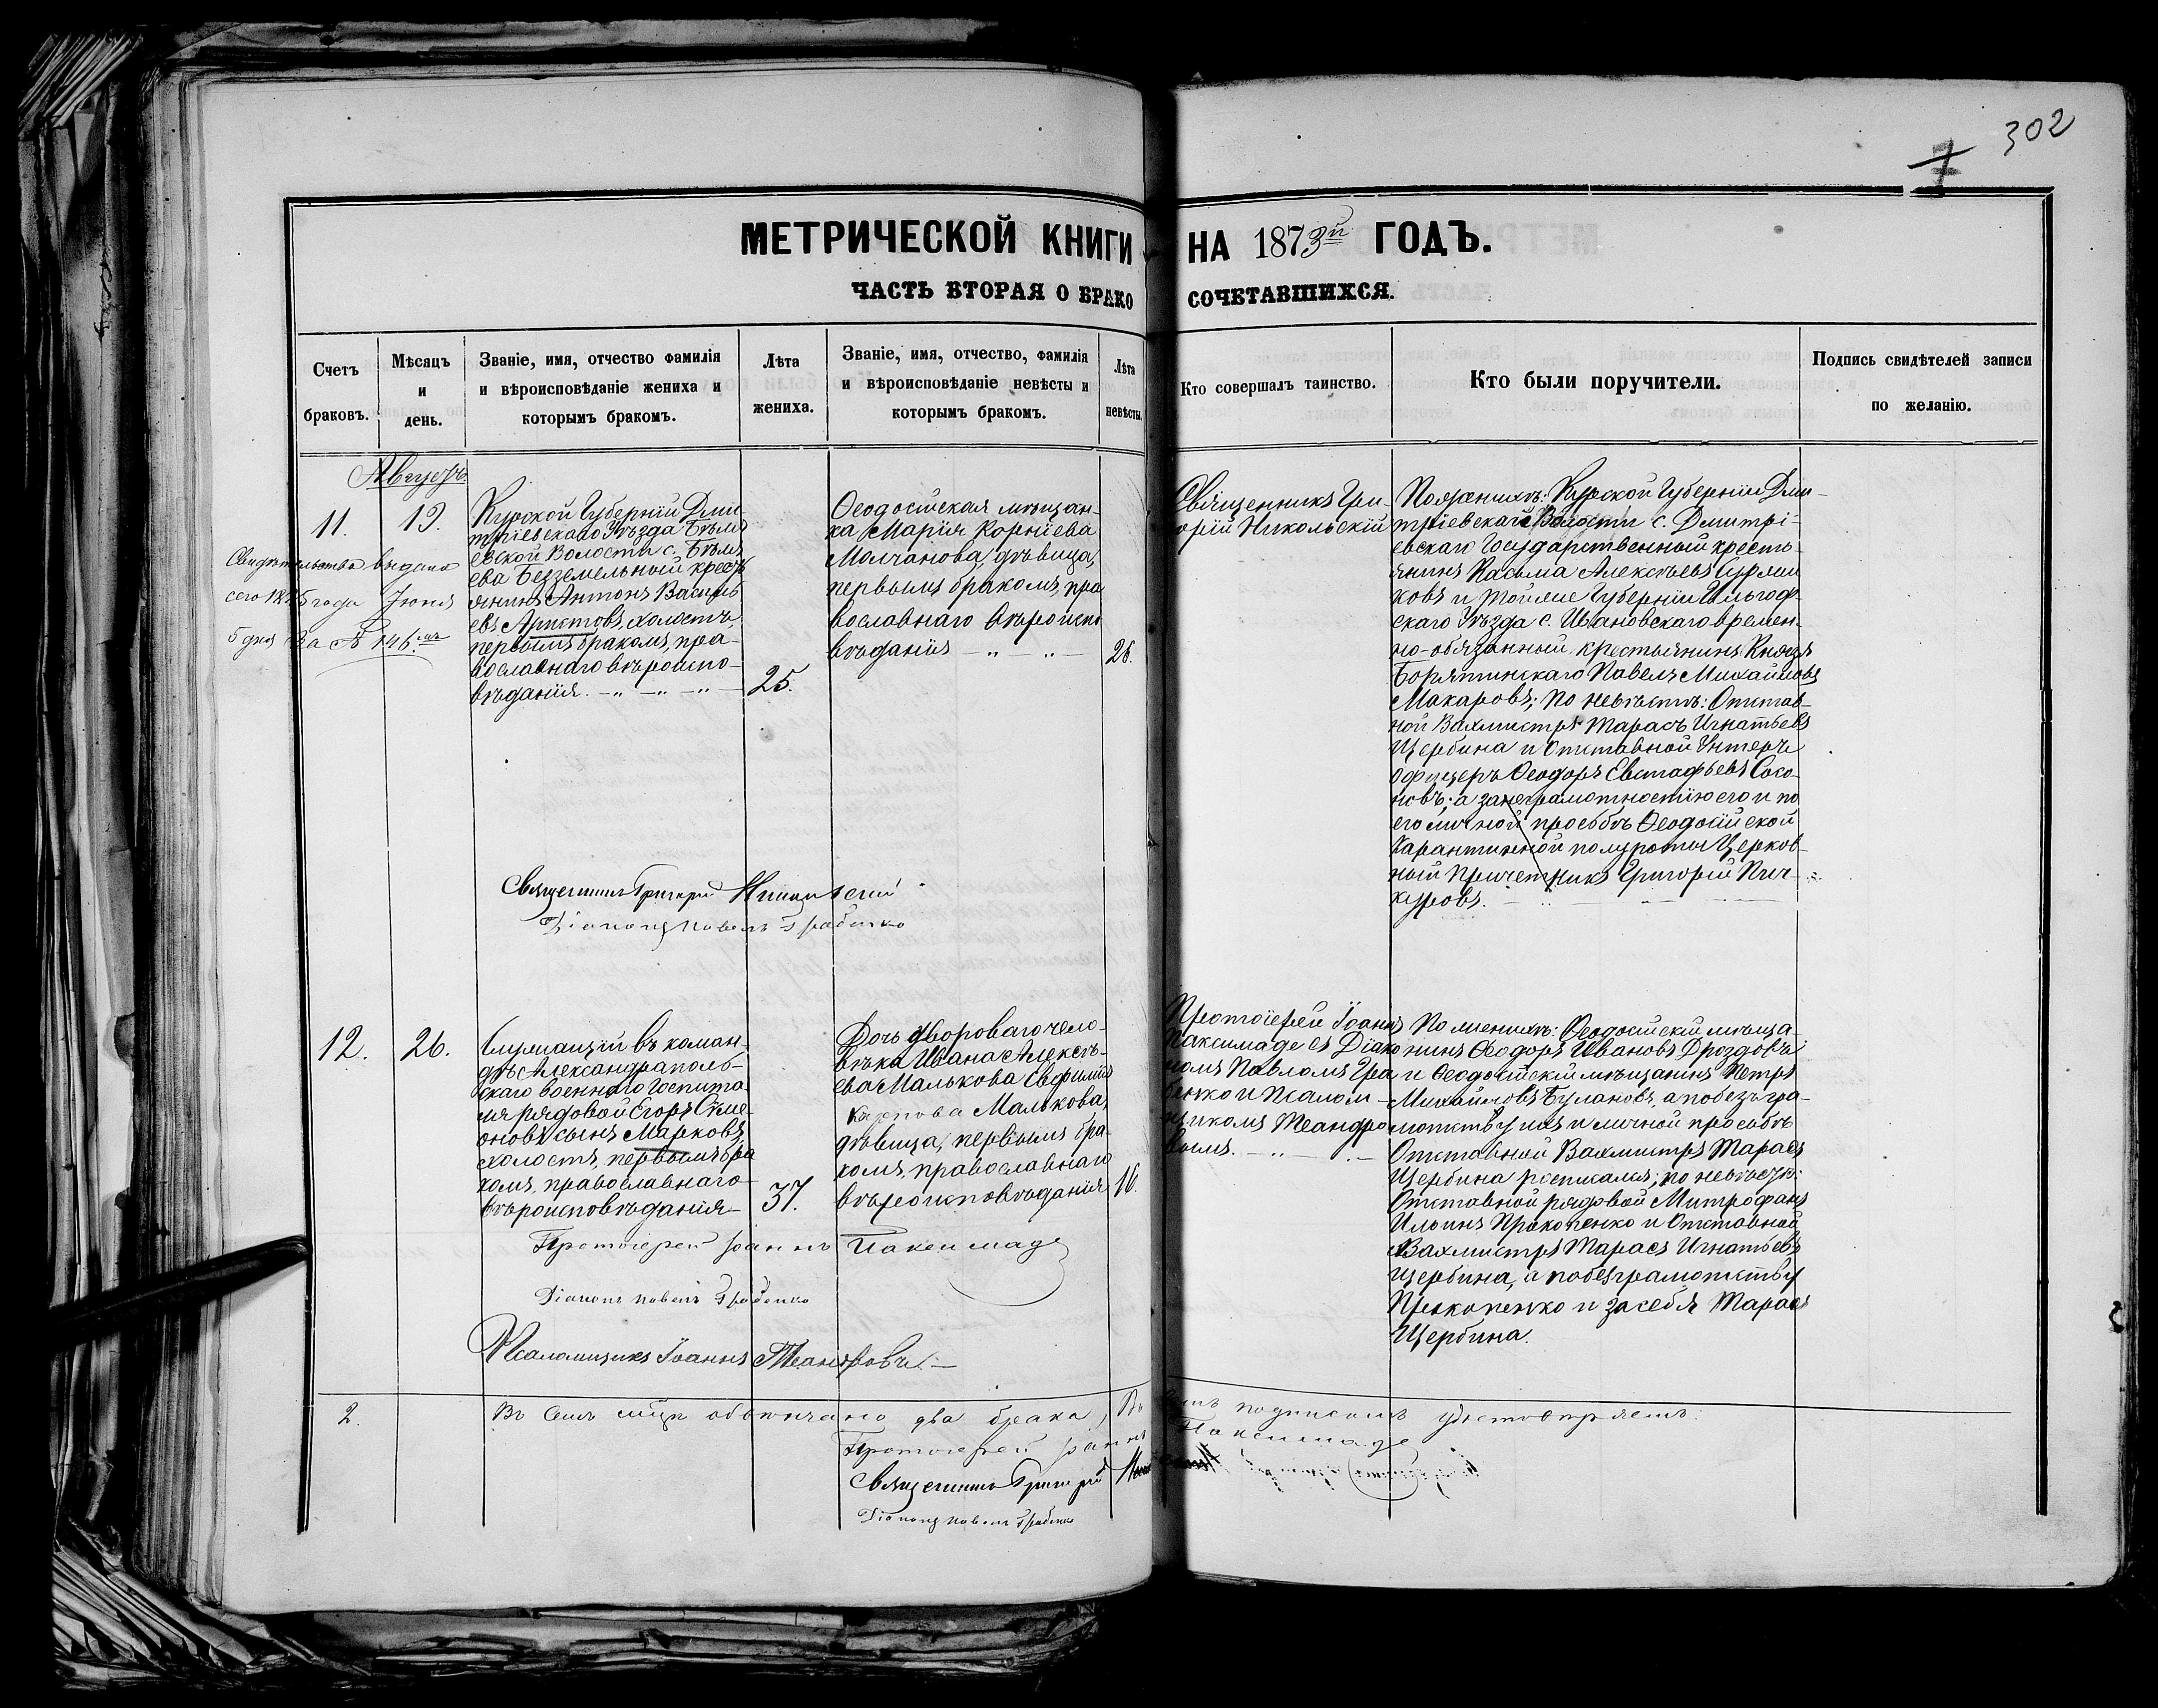 302
7
МЕТРИЧЕСКОЙ КНИГИ НА 1873й ГОДЪ.
ЧАСТЬ ВТОРАЯ О БРАКОСОЧЕТАВШИХСЯ.
Счетъ браковъ.
Мѣсяцъ и день.
Званіе, имя, отчество фамилія и вѣроисповѣданіе жениха и которымъ бракомъ.
Лѣта жениха.
Званіе, имя, отчество, фамилія и вѣроисповѣданіе невѣсты и которымъ бракомъ.
Лѣта невѣсты.
Кто совершалъ таинство.
Кто были поручители.
Подпись свидѣтелей записи по желанію.
Августъ.
11.
19.
Свидѣтельство выдано
сего 1875 года Іюня
5 дня за № 146.
Курской Губерніи Дми-
тріевскаго Уѣзда Бѣля
евской Волости с. Бѣля
ева Безземельный кресть
янинъ Антонъ Василь
евъ Аристовъ, холостъ,
первымъ бракомъ, пра-
вославнаго вѣроиспо-
вѣданія.
25.
Ѳеодосійская мѣщан-
ка Марія Корніева
Молчанова, дѣвица,
первымъ бракомъ, пра
вославнаго вѣроиспо
вѣданія
26.
Священникъ Гри-
горій Никольскій
По женихѣ: Курской Губерніи Дми-
тріевскаго Волости с. Дмитрі-
евскаго Государственный кресть-
янинъ Касьма Алексѣевъ
ковъ и тойже Губерніи Льгов-
скаго Уѣзда с. Ивановскаго времен-
но-обязанный крестьянинъ Князя
Борятинскаго Павелъ Михайловъ
Макаровъ; по невѣстѣ: Отстав-
ной Вахмистръ Тарасъ Игнатьевъ
Щербина и Отставной Унтеръ
офицеръ Ѳеодоръ Евстафьевъ Соко-
новъ; а за неграмотностію его и по
его личной просьбѣ Ѳеодосійской
Карантинной полуроты Церков-
ный Причетникъ Григорій Пич-
куровъ.
Священникъ Григорій Никольскій
Діаконъ Павелъ Грабенко
12.
26.
Служащій въ коман-
дѣ Александраполь-
скаго военнаго Госпита-
ля рядовой Егоръ Симе-
оновъ сынъ Марковъ,
холостъ, первымъ бра
комъ, православнаго
вѣроисповѣданія
37.
Дочь двороваго чело-
вѣка Ивана Алексѣ-
ева Малькова Евфимія
Малькова,
дѣвица, первымъ бра-
комъ, православнаго
вѣроисповѣданія
16.
Протоіерей Іоаннъ
Паксимаде съ Діако
номъ Павломъ Гра
бенко и Псалом-
щикомъ Теандро
вымъ.
По женихѣ: Ѳеодосійскій мѣща-
нинъ Ѳеодоръ Ивановъ Дроздовъ
и Ѳеодосійскій мѣщанинъ Петръ
Михайловъ Булановъ, а по безъ гра-
мотству ихъ и личной просьбѣ
Отставной Вахмистръ Тарасъ
Щербина росписался; по невѣстѣ:
Отставной рядовой Митрофанъ
Ильинъ Прокопенко и Отставной
Вахмистръ Тарасъ Игнатьевъ
Щербина, а по безграмотству
Прокопенко и за себя Тарасъ
Щербина.
Протоіерей Іоаннъ Паксимаде
Діаконъ Павелъ Грабенко
Псаломщикъ Іоаннъ Теандровъ
2.
Въ семъ мѣсяцѣ обвѣнчано два брака, въ чемъ подписомъ удостовѣряемъ:
Протоіерей Іоаннъ Паксимаде
Священникъ Григорій Никольскій
Діаконъ Павелъ Грабенко